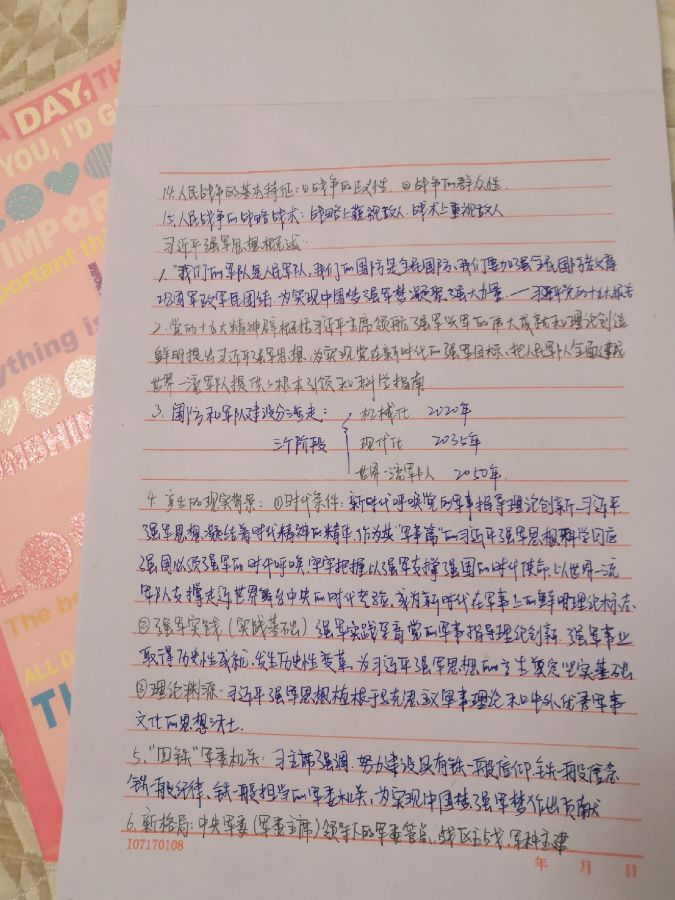 A DAY, TH
YOU, I'D G
IMPOR
portant th
ything is
The be
ALL D
TH
14.人民战争的基本特征:①战争的正义性 ②战争的群众性
15.人民战争的战略战术:战略上藐视敌人,战术上重视敌人
习近平强军思想概述
1."我们的军队是人民军队,我们的国防是全民国防,我们要加强全民国防教育
巩固军政军民团结,为实现中国梦强军梦凝聚强大力量.——习近平党的十九大报告
2.党的十九大精神辟 习近平主席领航强军兴军的伟大成就和理论创造
鲜明提出习近平强军思想,为实现党在新时代的强军目标、把人民军队全面建成
世界一流军队提供了根本引领和科学指南
3.国防和军队建设分三步走:
三个阶段
机械化 2020年
现代化 2035年
世界一流军队 2050年.
4.产生的现实背景:①时代条件:新时代呼唤党的军事指导理论创新.习近平
强军思想凝结着时代精神的精华,作为其"军事篇"的习近平强军思想科学回应
强国必须强军的时代呼唤,牢牢把握以强军支撑强国的时代使命,以世界一流
军队支撑走近世界舞台中央的时代考验,成为新时代在军事上的鲜明理论标志.
②强军实践(实践基础)强军实践孕育党的军事指导理论创新.强军事业
取得历史性成就,发生历史性变革,为习近平强军思想的产生奠定坚实基础
③理论渊源.习近平强军思想植根于马克思主义军事理论和中外优秀军事
文化的思想沃土.
5."四铁"军委机关:习主席强调,努力建设具有铁一般信仰,铁一般信念
铁一般纪律,铁一般担当的军委机关,为实现中国梦强军梦作出贡献
6.新格局:中央军委(军委主席)领导下的军委管总,战区主战,军种主建
I07170108
年 月 日